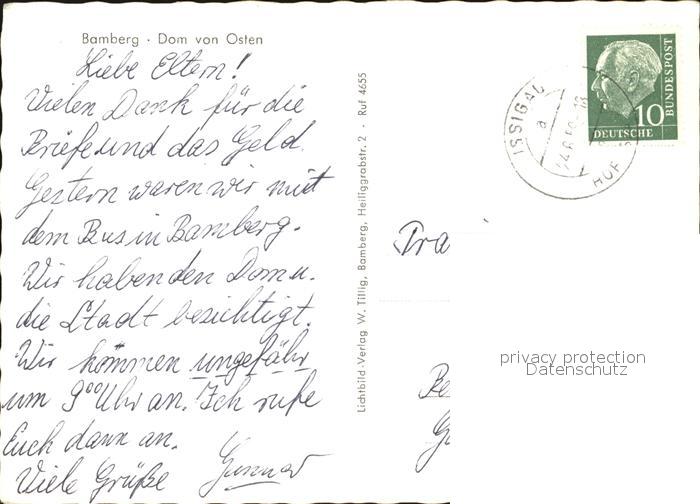 Bamberg · Dom von Osten
Liebe Eltern!
Vielen Dank für die
Briefe und das Geld.
Gestern waren wir mit
dem Bus in Bamberg.
Wir haben den Dom u.
die Stadt besichtigt.
Wir kommen ungefähr
um 9⁰⁰ Uhr an. Ich rufe
Euch dann an.
Viele Grüße Gunnar
Lichtbild-Verlag W. Tillig, Bamberg, Heiliggrabstr. 2 · Ruf 4655
ISSIGAU
a
HOF
10
DEUTSCHE
BUNDESPOST
privacy protection
Datenschutz